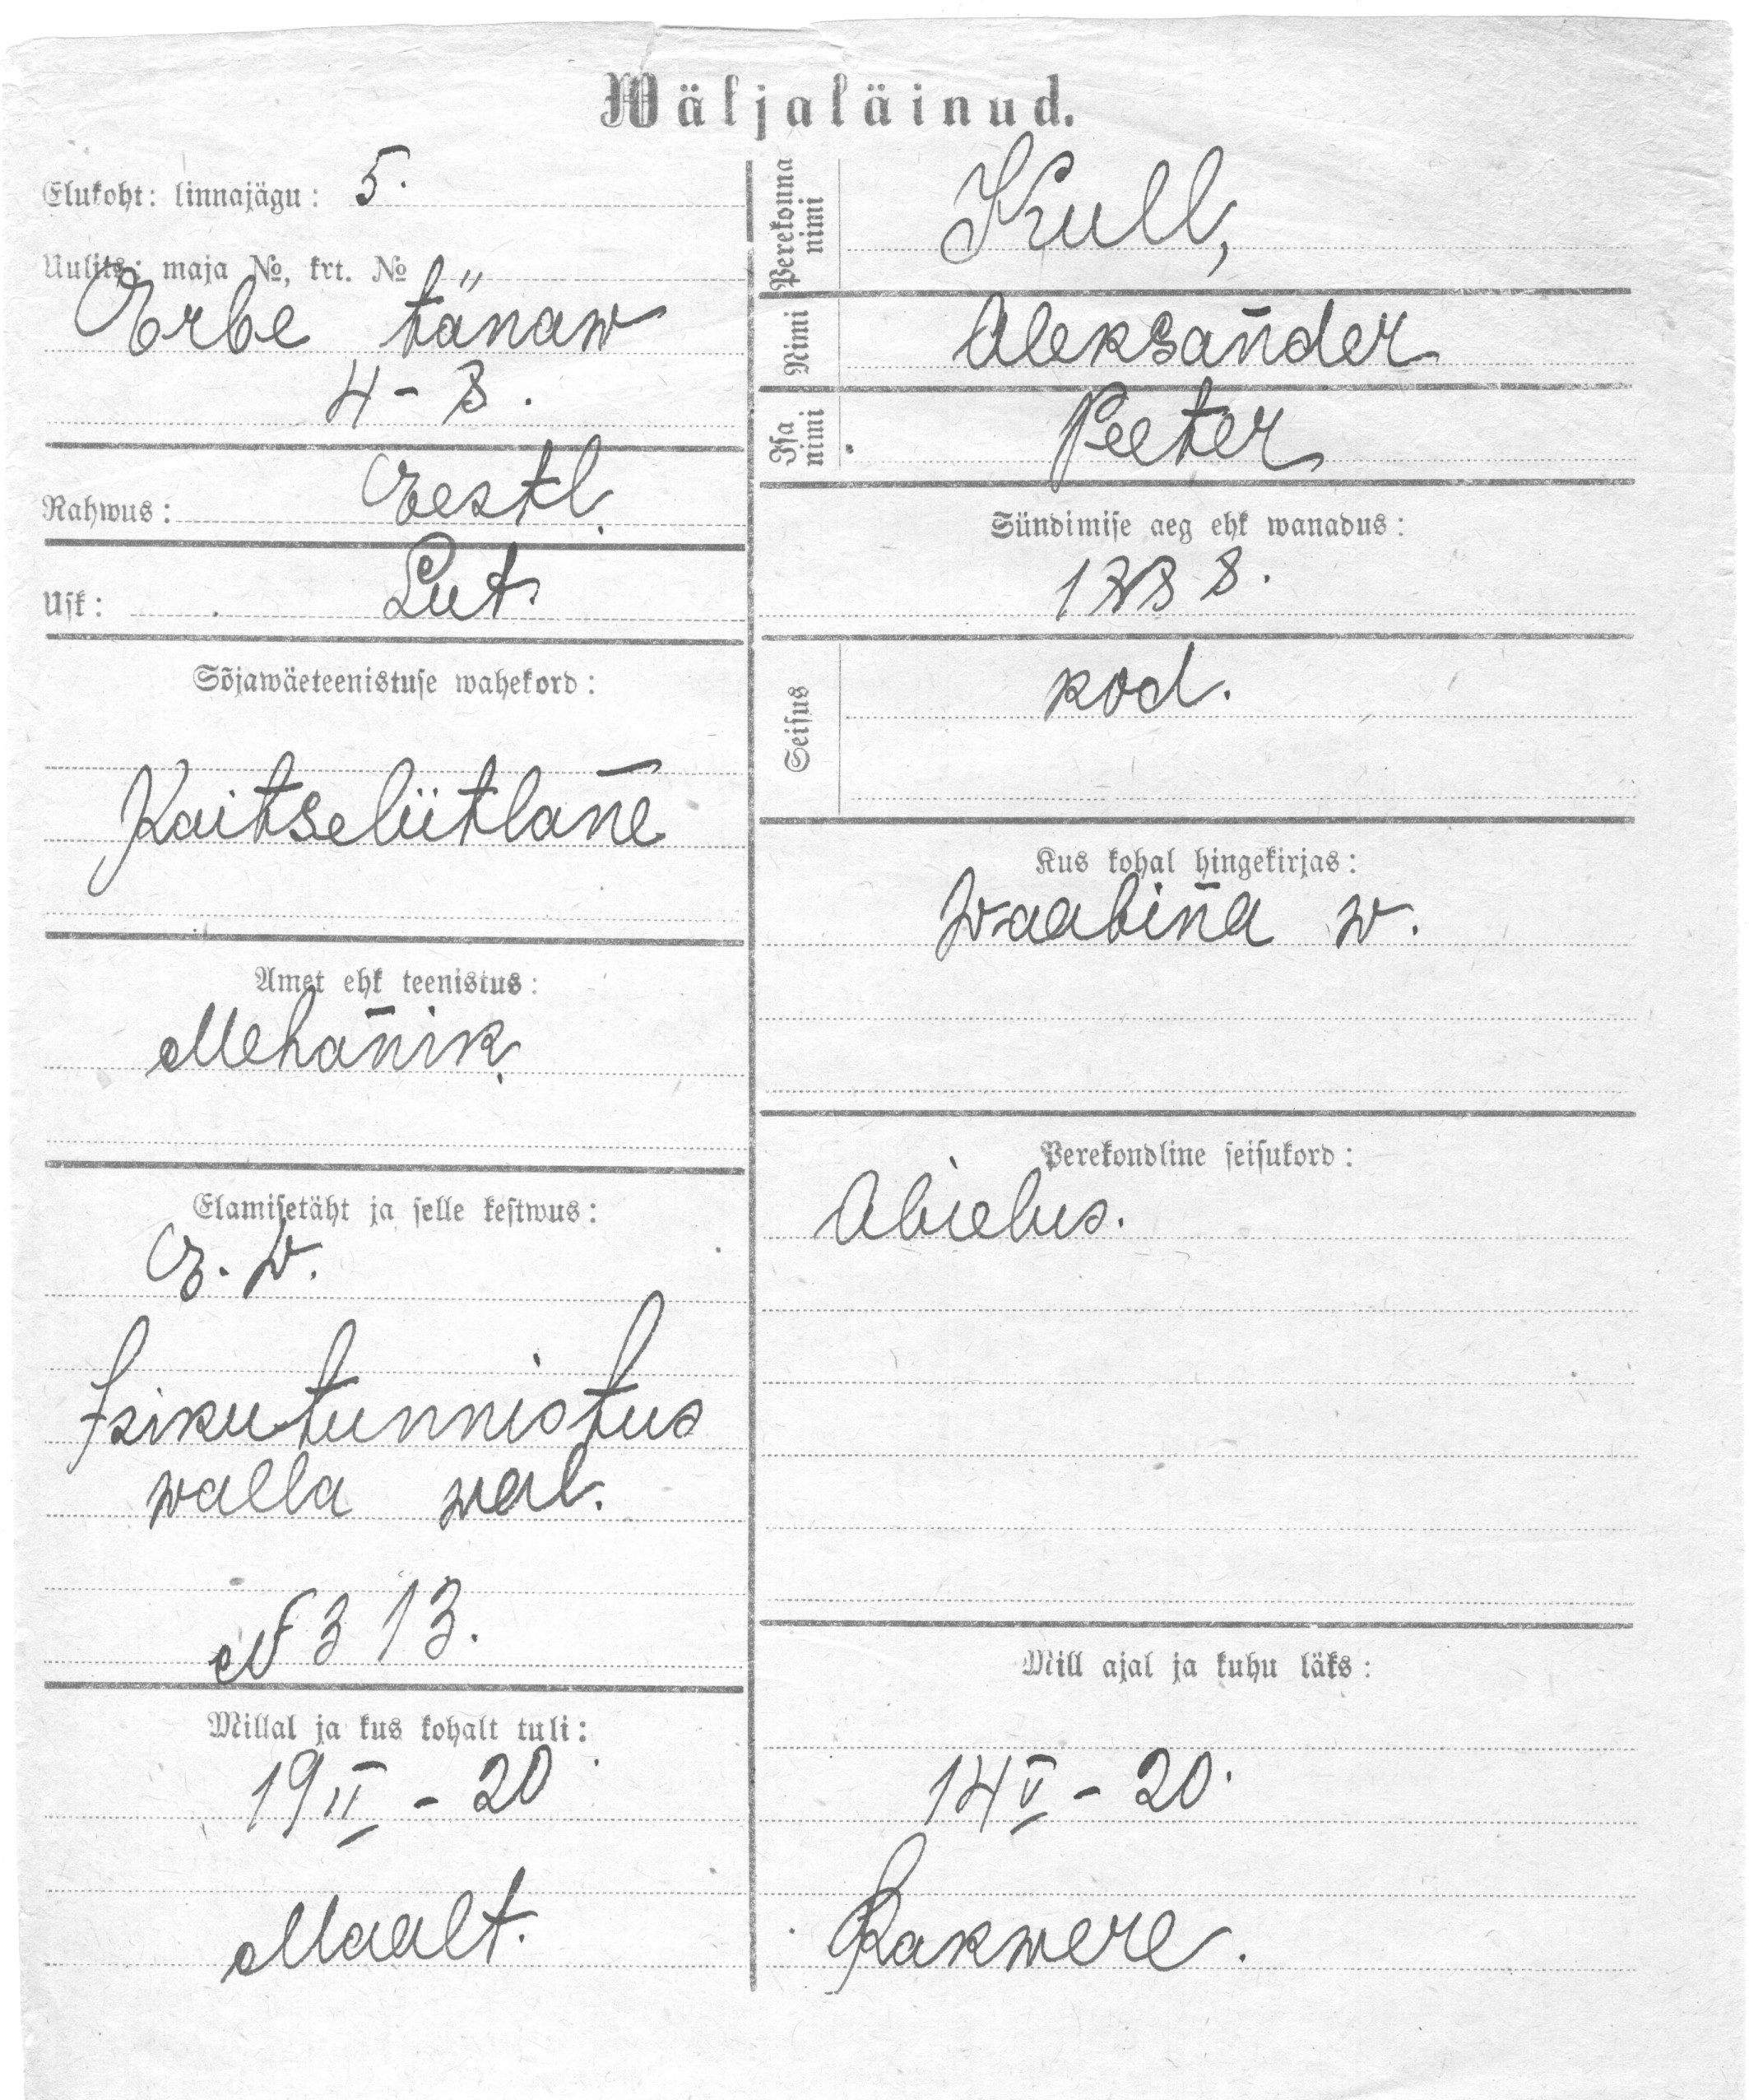 Wäljaläinud.
Elukoht: linnajägu: 5.
Uulits: maja №, krt. №
Erbe tänaw
4 - 8.
Rahwus: Eestl.
Usk: Lut.
Sõjawäeteenistuse wahekord:
Kaitseliitlane
Amet ehk teenistus:
Mehanik.
Elamisetäht ja selle kestwus:
E. W.
Isikutunnistus
walla wal.
№ 313.
Millal ja kus kohalt tuli:
19 II - 20
Maalt.
Perekonna nimi Kull,
Nimi Aleksander
Isa nimi Peeter
Sündimise aeg ehk wanadus:
1888.
Seisus kod.
Kus kohal hingekirjas:
Waabina w.
Perekondline seisukord:
Abielus.
Mill ajal ja kuhu läks:
14 V - 20.
Rakwere.